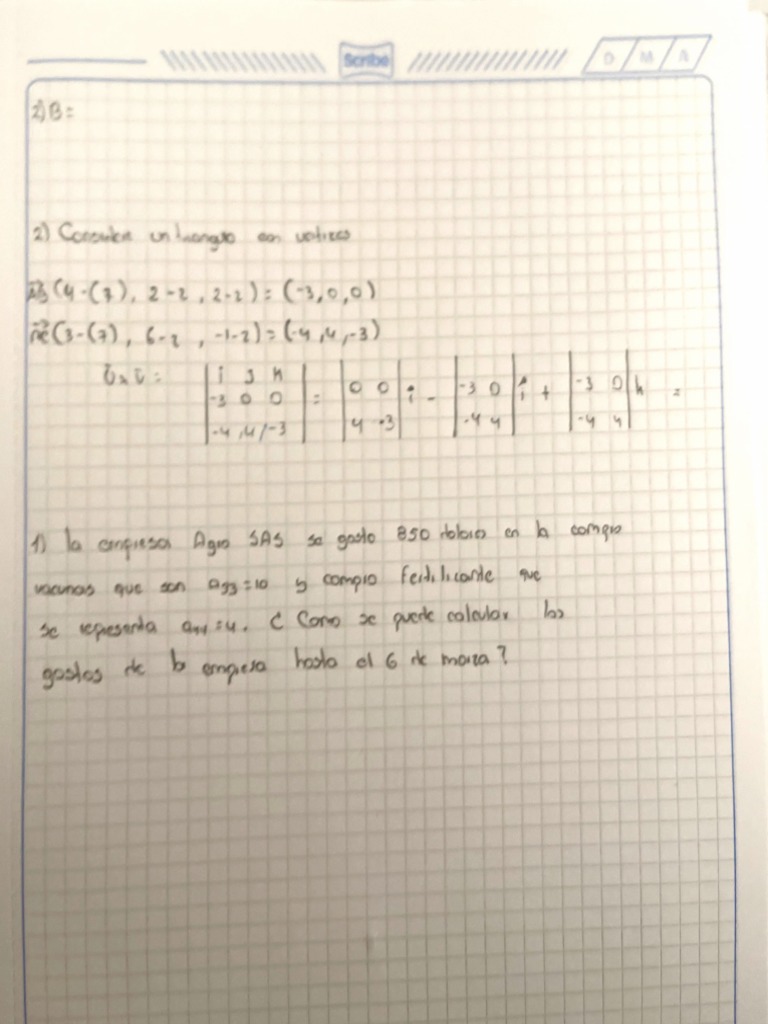 Scribe
D M A
2) B =
2) Considere un triangulo con vertices
AB (4-(7), 2-2, 2-2) = (-3,0,0)
AC (3-(7), 6-2, -1-2) = (-4,4,-3)
i J K
-3 0 0
-4,4,-3
= 0 0
4 -3
i - -3 0
-4 4
j + -3 0
-4 4
k =
1) la empresa Agro SAS se gasto 850 dolares en la compra
vacunas que son a33=10 y compro fertilizante que
se representa a44=4. ¿ Como se puede calcular los
gastos de la empresa hasta el 6 de marza?